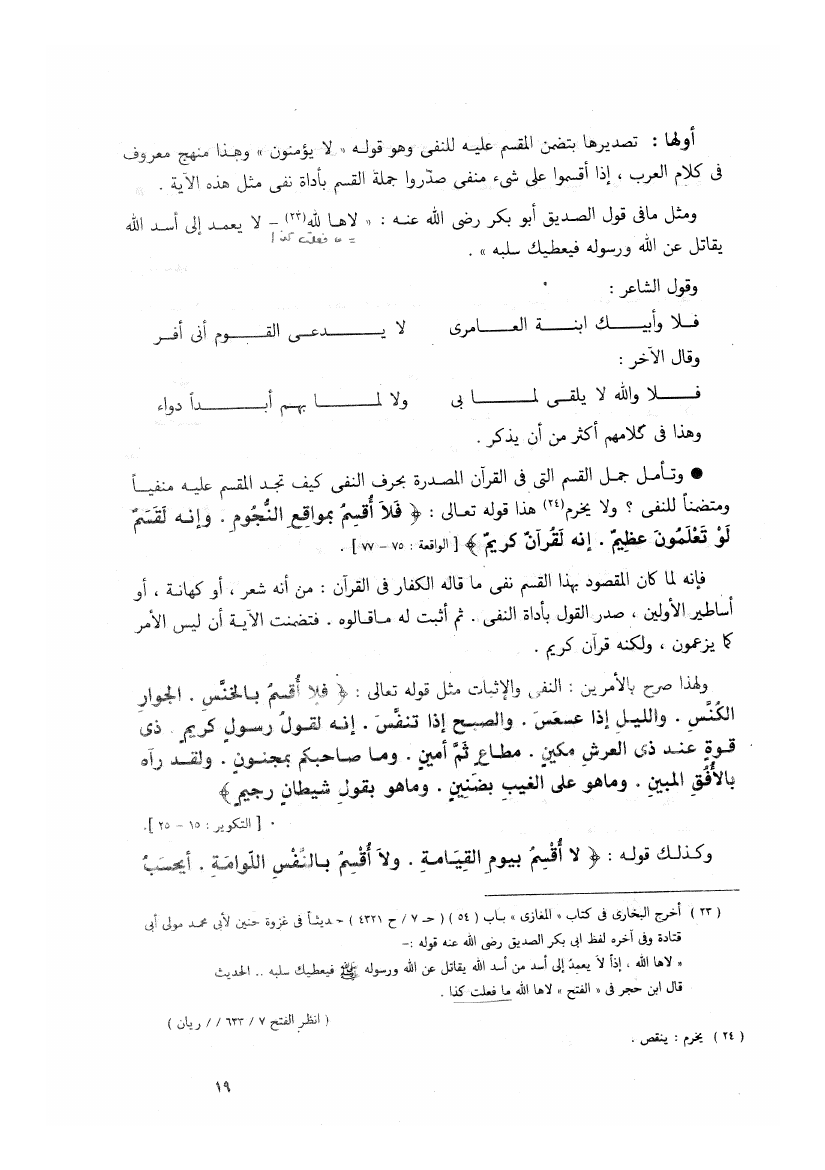 أولها : تصديرها بتضمن المقسم عليه للنفى وهو قوله « لا يؤمنون » وهذا منهج معروف
فى كلام العرب ، إذا أقسموا على شىء منفى صدّروا جملة القسم بأداة نفى مثل هذه الآية .
ومثل مافى قول الصديق أبو بكر رضى الله عنه : « لاها لله(٢٣) – لا يعمد إلى أسد الله
= ما فعلت كذا
يقاتل عن الله ورسوله فيعطيك سلبه » .
وقول الشاعر :
فلا وأبيك ابنة العامرى لا يدعى القوم أنى أفر
وقال الآخر :
فلا والله لا يلقى لما بى ولا لما بهم أبداً دواء
وهذا فى كلامهم أكثر من أن يذكر .
● وتأمل جمل القسم التى فى القرآن المصدرة بحرف النفى كيف تجد المقسم عليه منفياً
ومتضمناً للنفى ؟ ولا يخرم(٢٤) هذا قوله تعالى : ﴿ فَلاَ أُقسِمُ بمواقِعِ النُّجُومِ . وإنه لَقَسَمٌ
لَوْ تَعْلَمُونَ عظِيمٌ . إنه لَقُرآنٌ كريمٌ ﴾ [ الواقعة : ٧٥ – ٧٧ ] .
فإنه لما كان المقصود بهذا القسم نفى ما قاله الكفار فى القرآن : من أنه شعر ، أو كهانة ، أو
أساطير الأولين ، صدر القول بأداة النفى . ثم أثبت له ماقالوه . فتضمنت الآية أن ليس الأمر
كما يزعمون ، ولكنه قرآن كريم .
ولهذا صرح بالأمرين : النفى والإثبات مثل قوله تعالى : ﴿ فلا أُقسِمُ بالخنَّسِ . الجوارِ
الكُنَّسِ . والليلِ إذا عسعَسَ . والصبحِ إذا تنفَّسَ . إنه لقولُ رسولٍ كريمٍ . ذى
قوةٍ عند ذى العرشِ مكينٍ . مطاعٍ ثَمَّ أمينٍ . وما صاحبكم بمجنونٍ . ولقد رآه
بالأُفُقِ المبينِ . وماهو على الغيبِ بضَنِينٍ . وماهو بقولِ شيطانٍ رجيمٍ ﴾
[ التكوير : ١٥ – ٢٥ ].
وكذلك قوله : ﴿ لا أُقْسِمُ بيومِ القِيَامةِ . ولاَ أُقْسِمُ بالنَّفْسِ اللوامَةِ . أيحسَبُ
( ٢٣ ) أخرج البخارى فى كتاب « المغازى » باب ( ٥٤ ) ( جـ ٧ / ح ٤٣٢١ ) حديثاً فى غزوة حنين لأبى محمد مولى أبى
قتادة وفى آخره لفظ ابى بكر الصديق رضى الله عنه قوله :–
« لاها الله ، إذاً لاَ يعمدُ إلى أسد من أسد الله يقاتل عن الله ورسوله ﷺ فيعطيك سلبه .. الحديث
قال ابن حجر فى « الفتح » لاها الله ما فعلت كذا .
( انظر الفتح ٧ / ٦٣٣ / / ريان )
( ٢٤ ) يخرم : ينقص .
١٩